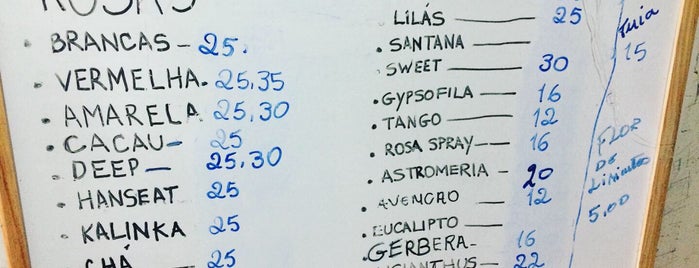 ROSAS
• BRANCAS — 25.
• VERMELHA - 25,35
• AMARELA 25,30
• CACAU — 25
• DEEP — 25,30
• HANSEAT 25
• KALINKA 25
CHÁ 25
LILÁS — 25
• SANTANA —
SWEET — 30
• GYPSOFILA — 16
• TANGO — 12
• ROSA SPRAY — 16
• ASTROMERIA - 20
• AVENCAO — 12
• EUCALIPTO —
• GERBERA - 16
LISIANTHUS - 22
Tuia
15
FLOR
DE
5,00